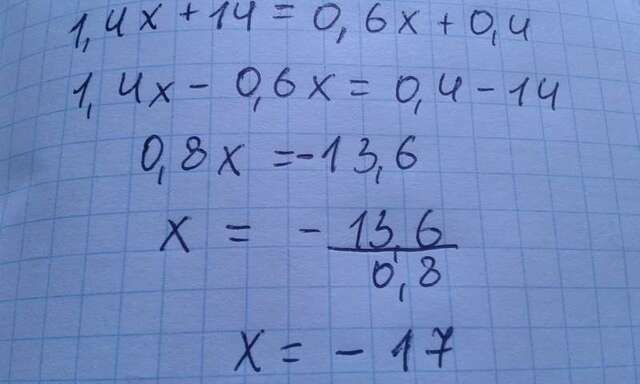 1,4x + 14 = 0,6x + 0,4
1,4x - 0,6x = 0,4 - 14
0,8x = -13,6
x = - 13,6 / 0,8
x = - 17